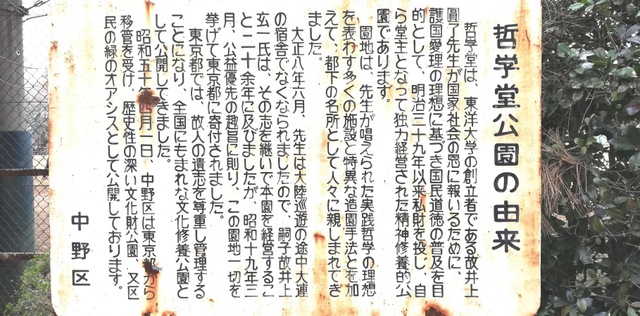 哲学堂公園の由来
哲学堂は、東洋大学の創立者である故井上
圓了先生が国家社会の恩に報いるために、
護国愛理の理想に基づき国民道徳の普及を目
的として、明治三十九年以来私財を投じ、自
ら堂主となって独力経営された精神修養的公
園であります。
園地は、先生が唱えられた実践哲学の理想
を表わす多くの施設と特異な造園手法とを加
えて、都下の名所として人々に親しまれてき
ました。
大正八年六月、先生は大陸巡遊の途中大連
の宿舎でなくなられましたので、嗣子故井上
玄一氏は、その志を継いで本園を経営するこ
と二十余年に及びましたが、昭和十九年三
月、公益優先の趣旨に則り、この園地一切を
挙げて東京都に寄付されました。
東京都では、故人の遺志を尊重し管理する
ことになり、全国にもまれな文化修養公園と
して公開してきました。
昭和五十年四月一日、中野区は東京都から
移管を受け、歴史性の深い文化財公園、又区
民の緑のオアシスとして公開しております。
中野区